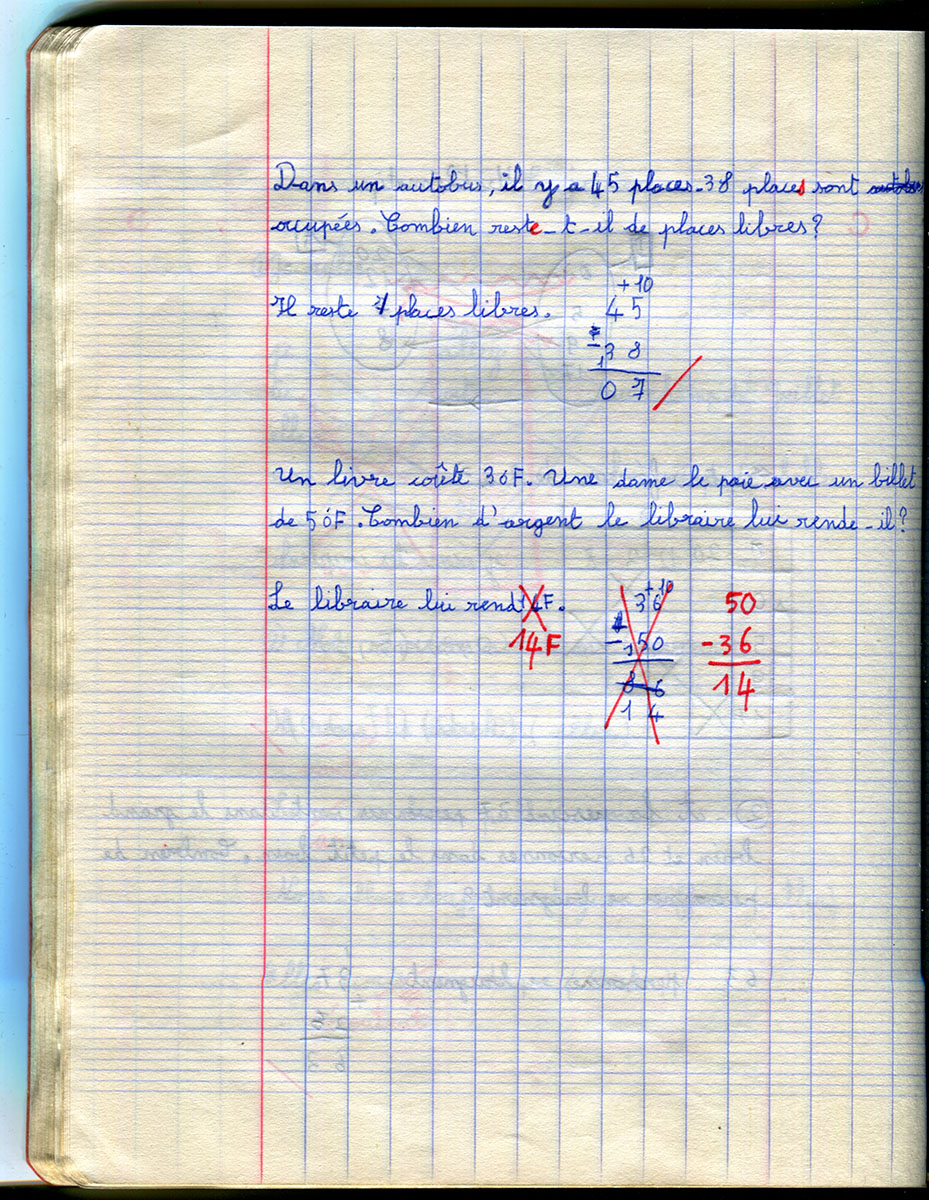 Dans un autobus, il y a 45 places. 38 places sont autobus
occupées. Combien reste-t-il de places libres?
+10
Il reste 7 places libres. 45
- 138
07
Un livre coûte 36F. Une dame le paie avec un billet
de 50F. Combien d'argent le libraire lui rende-il?
+10
Le libraire lui rend 14F. 36 50
14F - 150 -36
86 14
14